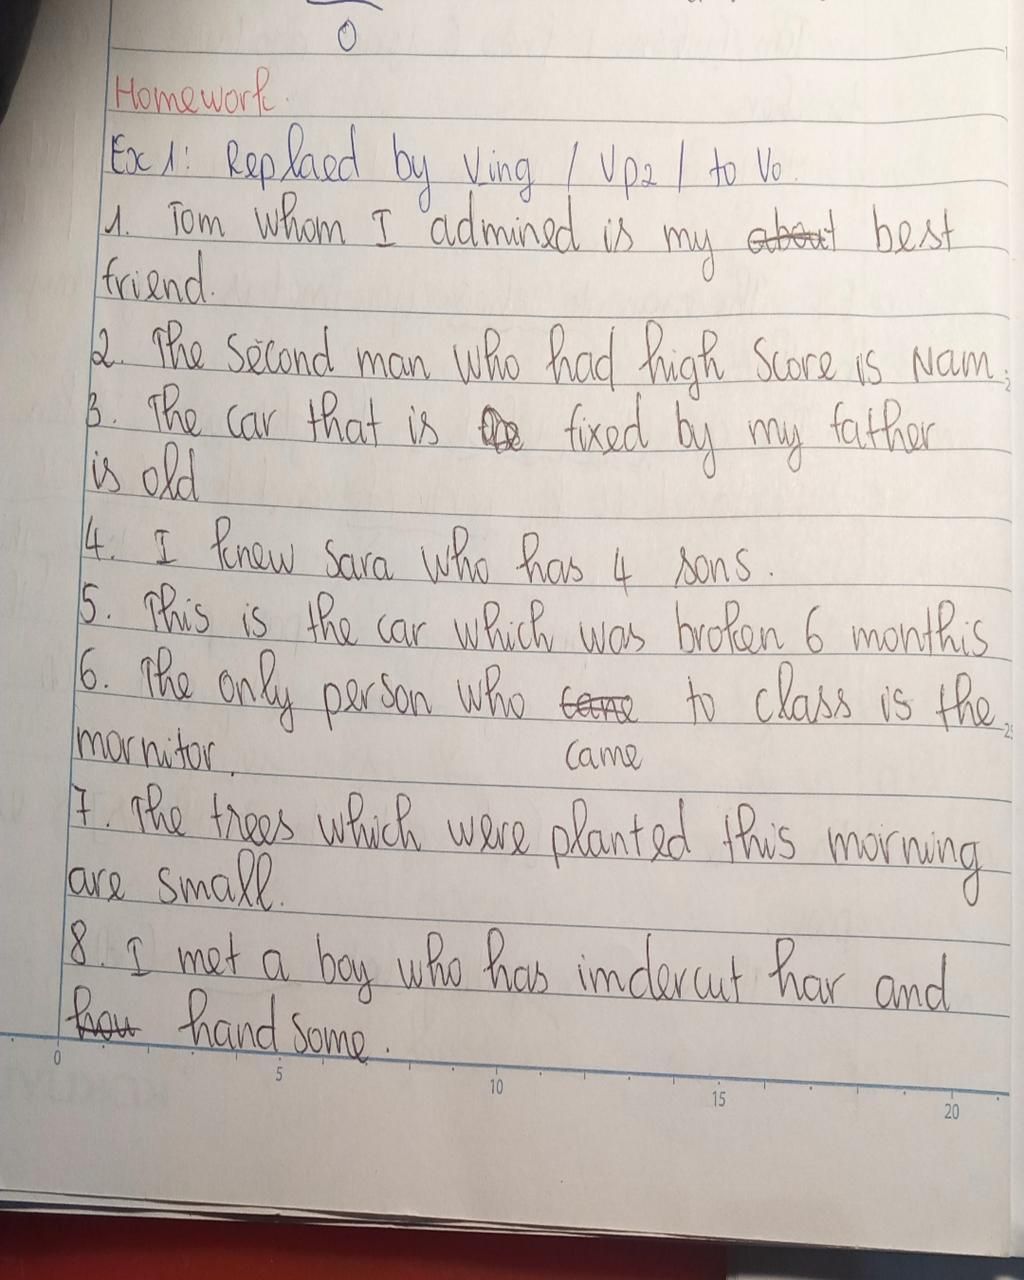 Homework.
Ex 1: Replaed by Ving / Vp2 / to Vo.
1. Tom whom I admined is my about best
friend.
2. The second man who had high score is Nam.
3. The car that is fixed by my father
is old
4. I knew Sara who has 4 sons.
5. This is the car which was broken 6 monthis
6. The only person who came to class is the
mornitor. came
7. The trees which were planted this morning
are small.
8. I met a boy who has imdercut har and
hand some.
0 5 10 15 20